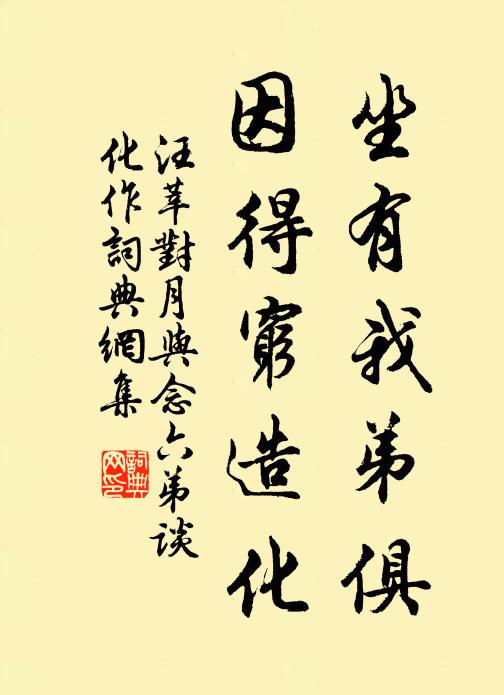 坐有我弟俱
因得窮造化
汪莘對月與念六弟談
化作詞典網集
詞典網印